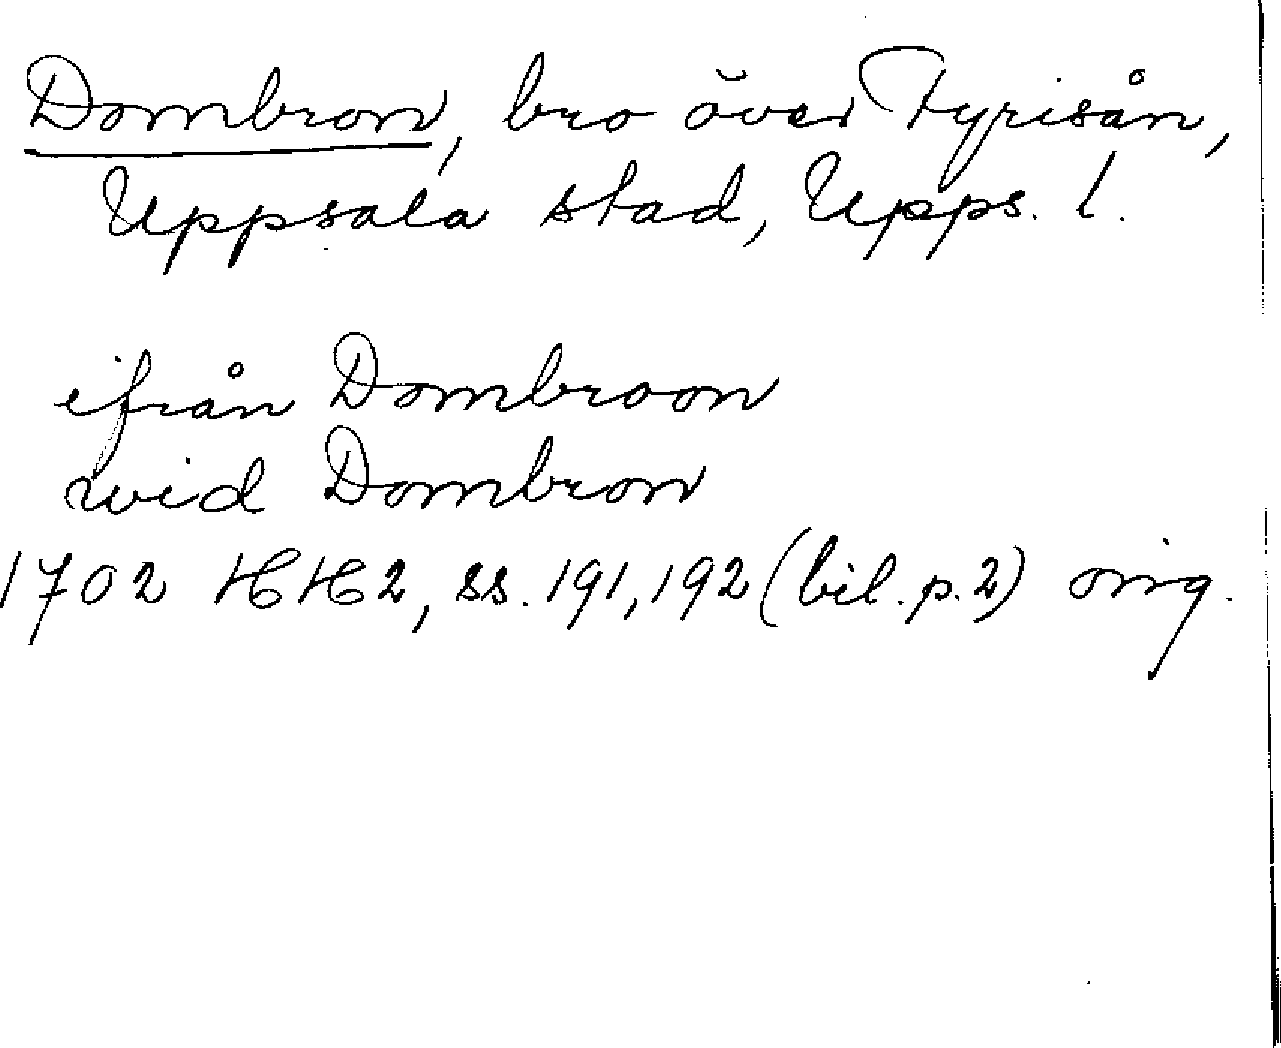 Dombron, bro över Fyrisån,
Uppsala stad, Upps. l.
ifrån Dombroon
wid Dombron
1702 HH2, ss. 191, 192 (bil. p. 2) orig.